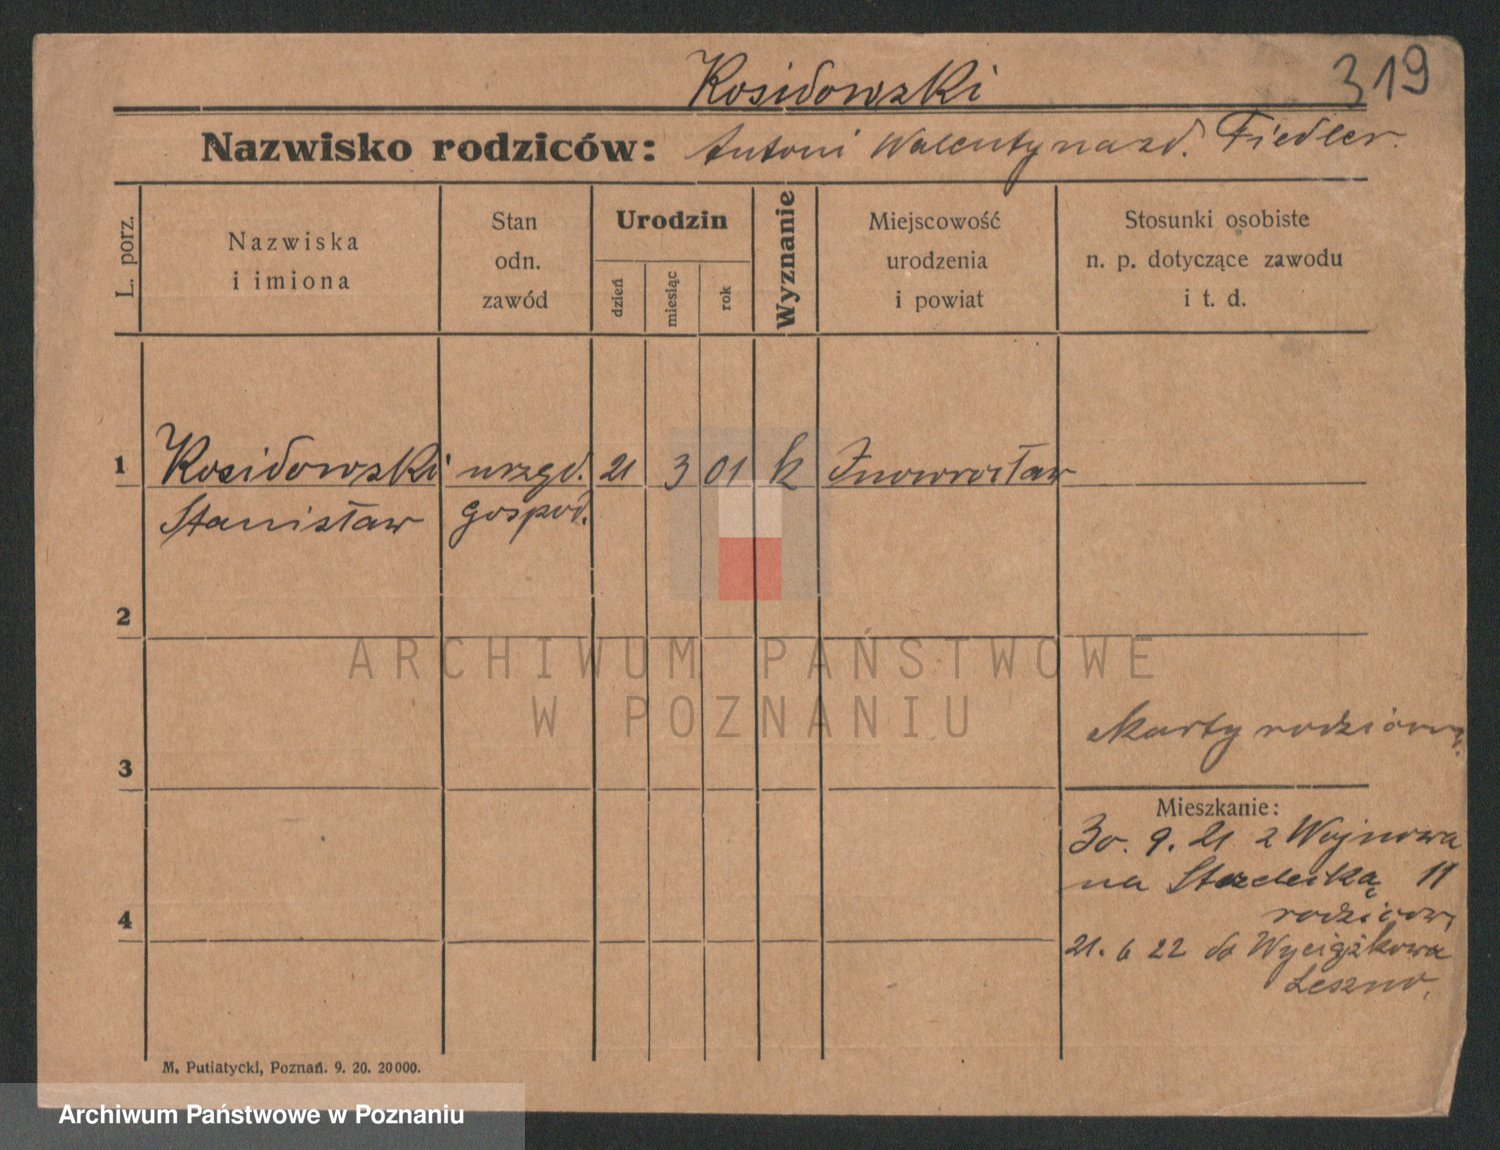 319
Kosidowski
Nazwisko rodziców: Antoni Walentyna zd. Fiedler.
L. porz.
Nazwiska
i imiona
Stan
odn.
zawód
Urodzin
dzień
miesiąc
rok
Wyznanie
Miejscowość
urodzenia
i powiat
Stosunki osobiste
n. p. dotyczące zawodu
i t. d.
1 Kosidowski urzęd. 21 3 01 k Inowrocław
Stanisław gospod.
2
ARCHIWUM PAŃSTWOWE
W POZNANIU
rodziców
3
Mieszkanie:
30. 9. 21 z Wojnowa
na 11
rodziców
4
21. 6 22 do Wyciążkowa
Leszno.
M. Putiatycki, Poznań. 9. 20. 20000.
Archiwum Państwowe w Poznaniu